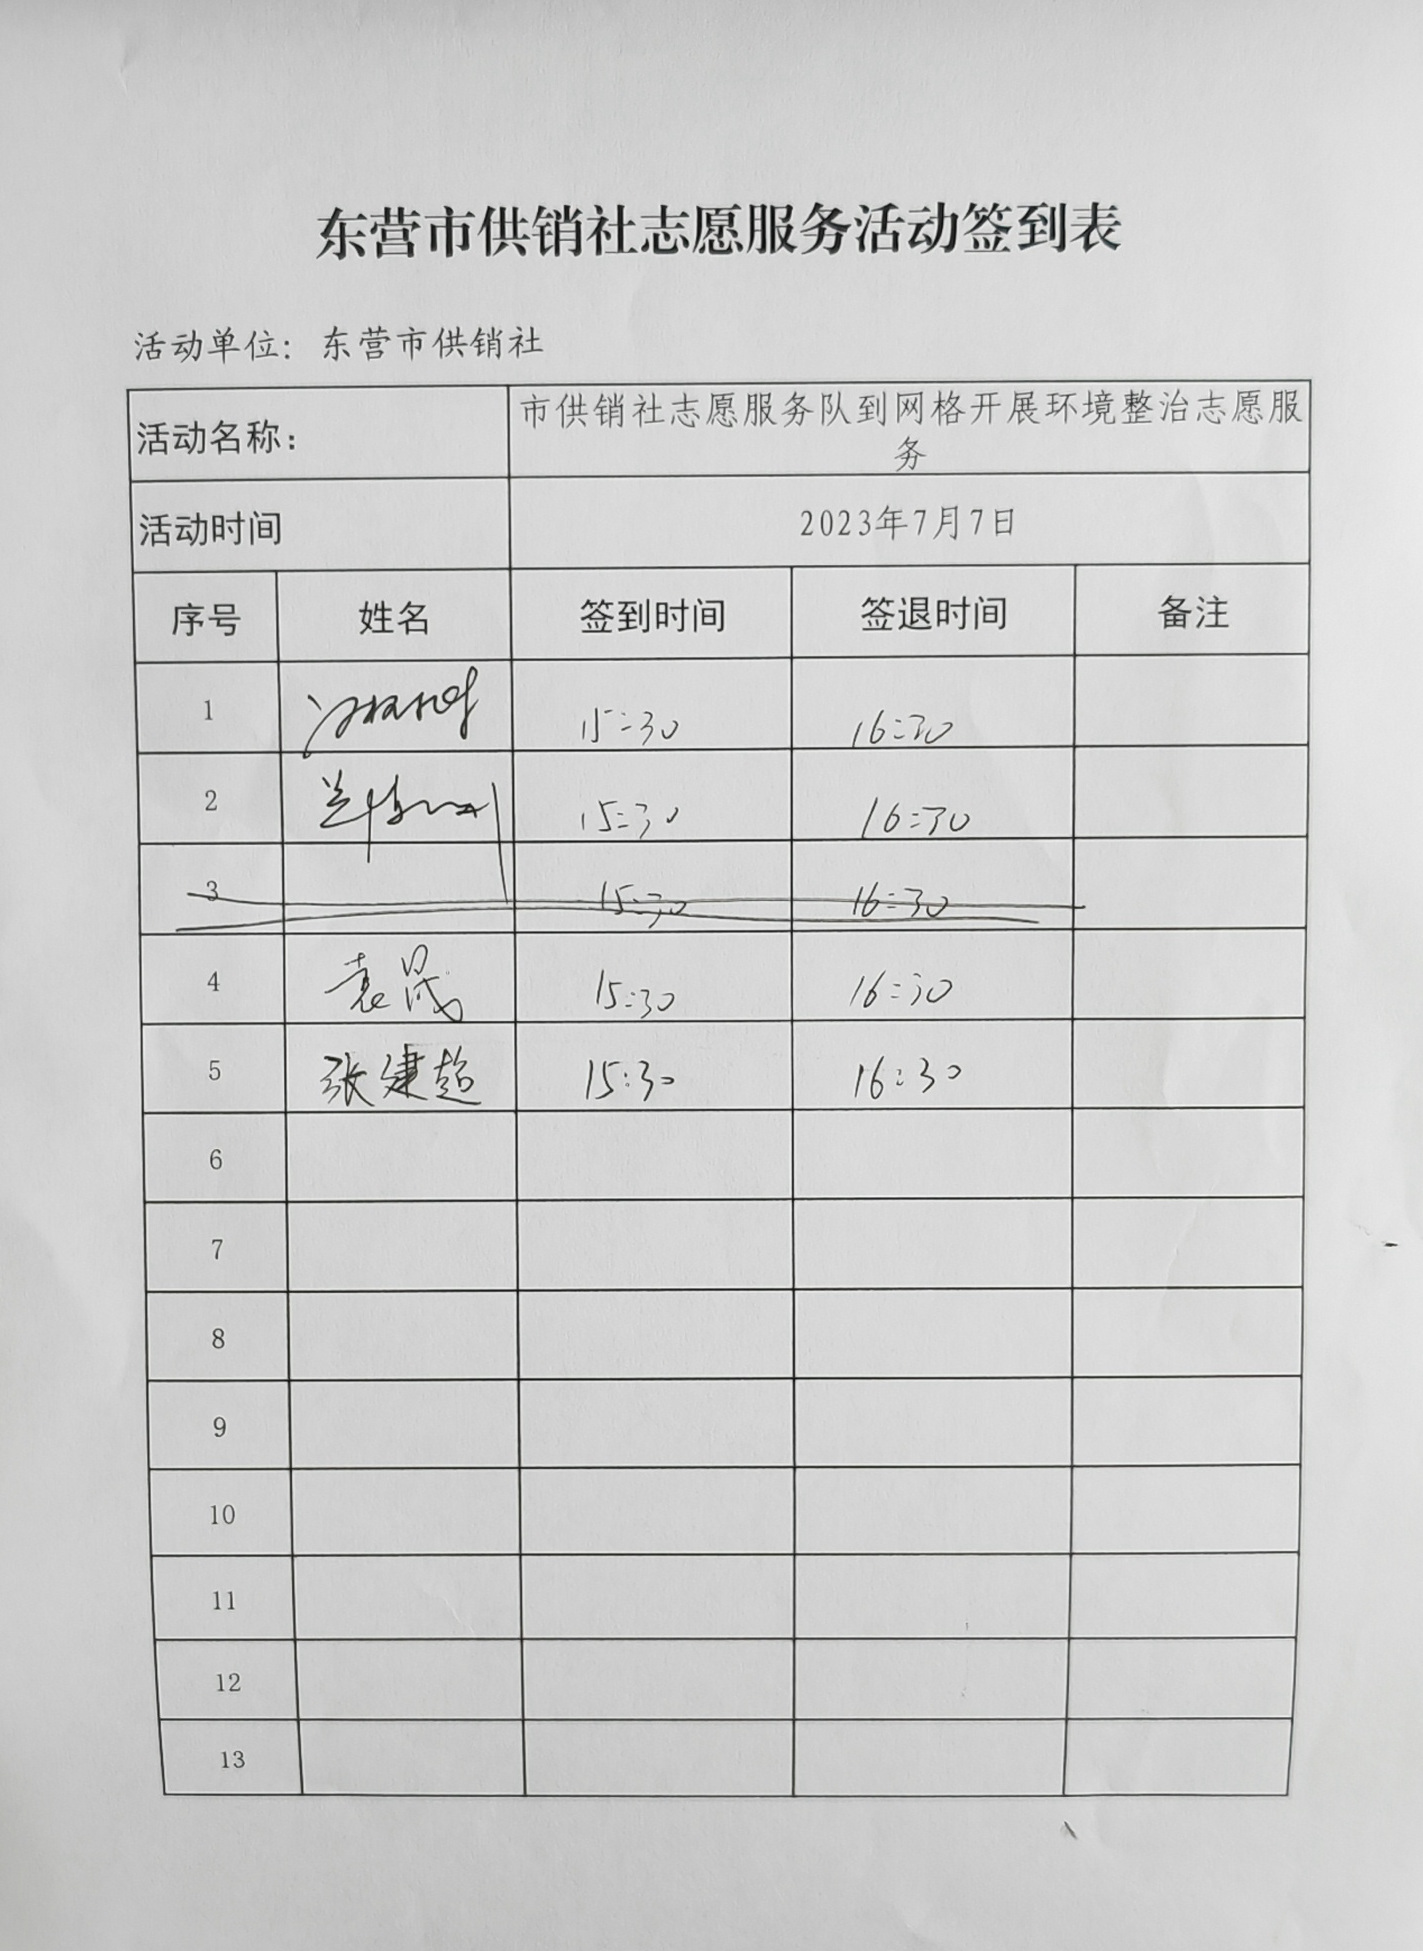 东营市供销社志愿服务活动签到表
活动单位：东营市供销社
活动名称： 市供销社志愿服务队到网格开展环境整治志愿服
务
活动时间 2023年7月7日
序号 姓名 签到时间 签退时间 备注
1 15:30 16:30
2 15:30 16:30
3 15:30 16:30
4 袁晟 15:30 16:30
5 张建超 15:30 16:30
6
7
8
9
10
11
12
13